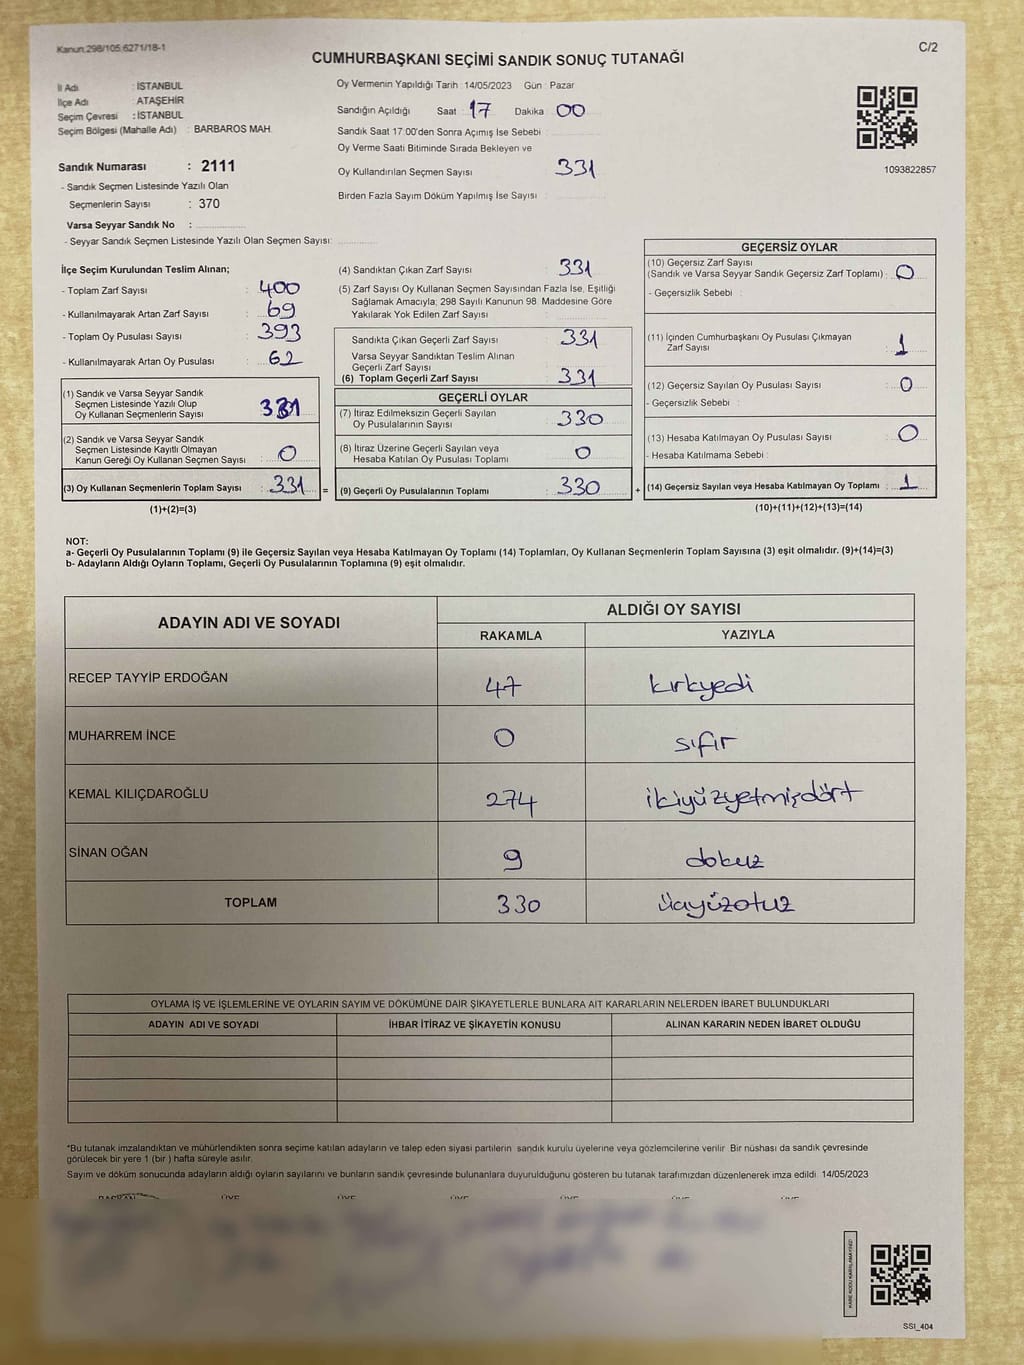 Kanun:298/105:6271/18-1
C/2
CUMHURBAŞKANI SEÇİMİ SANDIK SONUÇ TUTANAĞI
İl Adı : İSTANBUL
İlçe Adı : ATAŞEHİR
Seçim Çevresi : İSTANBUL
Seçim Bölgesi (Mahalle Adı) : BARBAROS MAH.
Sandık Numarası : 2111
- Sandık Seçmen Listesinde Yazılı Olan
Seçmenlerin Sayısı : 370
Varsa Seyyar Sandık No :
- Seyyar Sandık Seçmen Listesinde Yazılı Olan Seçmen Sayısı:
Oy Vermenin Yapıldığı Tarih : 14/05/2023 Gün : Pazar
Sandığın Açıldığı Saat 17 Dakika 00
Sandık Saat 17:00'den Sonra Açımış İse Sebebi :
Oy Verme Saati Bitiminde Sırada Bekleyen ve
Oy Kullandırılan Seçmen Sayısı : 331
Birden Fazla Sayım Döküm Yapılmış İse Sayısı :
1093822857
İlçe Seçim Kurulundan Teslim Alınan;
- Toplam Zarf Sayısı : 400
- Kullanılmayarak Artan Zarf Sayısı : 69
- Toplam Oy Pusulası Sayısı : 393
- Kullanılmayarak Artan Oy Pusulası : 62
(1) Sandık ve Varsa Seyyar Sandık
Seçmen Listesinde Yazılı Olup
Oy Kullanan Seçmenlerin Sayısı : 331
(2) Sandık ve Varsa Seyyar Sandık
Seçmen Listesinde Kayıtlı Olmayan
Kanun Gereği Oy Kullanan Seçmen Sayısı : 0
(3) Oy Kullanan Seçmenlerin Toplam Sayısı : 331 =
(1)+(2)=(3)
(4) Sandıktan Çıkan Zarf Sayısı : 331
(5) Zarf Sayısı Oy Kullanan Seçmen Sayısından Fazla İse, Eşitliği
Sağlamak Amacıyla; 298 Sayılı Kanunun 98. Maddesine Göre
Yakılarak Yok Edilen Zarf Sayısı :
Sandıkta Çıkan Geçerli Zarf Sayısı : 331
Varsa Seyyar Sandıktan Teslim Alınan
Geçerli Zarf Sayısı :
(6) Toplam Geçerli Zarf Sayısı : 331
GEÇERLİ OYLAR
(7) İtiraz Edilmeksizin Geçerli Sayılan
Oy Pusulalarının Sayısı : 330
(8) İtiraz Üzerine Geçerli Sayılan veya
Hesaba Katılan Oy Pusulası Toplamı : 0
(9) Geçerli Oy Pusulalarının Toplamı : 330 +
GEÇERSİZ OYLAR
(10) Geçersiz Zarf Sayısı
(Sandık ve Varsa Seyyar Sandık Geçersiz Zarf Toplamı) : 0
- Geçersizlik Sebebi :
(11) İçinden Cumhurbaşkanı Oy Pusulası Çıkmayan
Zarf Sayısı : 1
(12) Geçersiz Sayılan Oy Pusulası Sayısı : 0
- Geçersizlik Sebebi :
(13) Hesaba Katılmayan Oy Pusulası Sayısı : 0
- Hesaba Katılmama Sebebi :
(14) Geçersiz Sayılan veya Hesaba Katılmayan Oy Toplamı : 1
(10)+(11)+(12)+(13)=(14)
NOT:
a- Geçerli Oy Pusulalarının Toplamı (9) ile Geçersiz Sayılan veya Hesaba Katılmayan Oy Toplamı (14) Toplamları, Oy Kullanan Seçmenlerin Toplam Sayısına (3) eşit olmalıdır. (9)+(14)=(3)
b- Adayların Aldığı Oyların Toplamı, Geçerli Oy Pusulalarının Toplamına (9) eşit olmalıdır.
ADAYIN ADI VE SOYADI
ALDIĞI OY SAYISI
RAKAMLA YAZIYLA
RECEP TAYYİP ERDOĞAN 47 kırkyedi
MUHARREM İNCE 0 sıfır
KEMAL KILIÇDAROĞLU 274 ikiyüzyetmişdört
SİNAN OĞAN 9 dokuz
TOPLAM 330 üçyüzotuz
OYLAMA İŞ VE İŞLEMLERİNE VE OYLARIN SAYIM VE DÖKÜMÜNE DAİR ŞİKAYETLERLE BUNLARA AİT KARARLARIN NELERDEN İBARET BULUNDUKLARI
ADAYIN ADI VE SOYADI İHBAR İTİRAZ VE ŞİKAYETİN KONUSU ALINAN KARARIN NEDEN İBARET OLDUĞU
*Bu tutanak imzalandıktan ve mühürlendikten sonra seçime katılan adayların ve talep eden siyasi partilerin sandık kurulu üyelerine veya gözlemcilerine verilir. Bir nüshası da sandık çevresinde
görülecek bir yere 1 (bir ) hafta süreyle asılır.
Sayım ve döküm sonucunda adayların aldığı oyların sayılarını ve bunların sandık çevresinde bulunanlara duyurulduğunu gösteren bu tutanak tarafımızdan düzenlenerek imza edildi. 14/05/2023
BAŞKAN ÜYE ÜYE ÜYE ÜYE ÜYE ÜYE
SSI_404